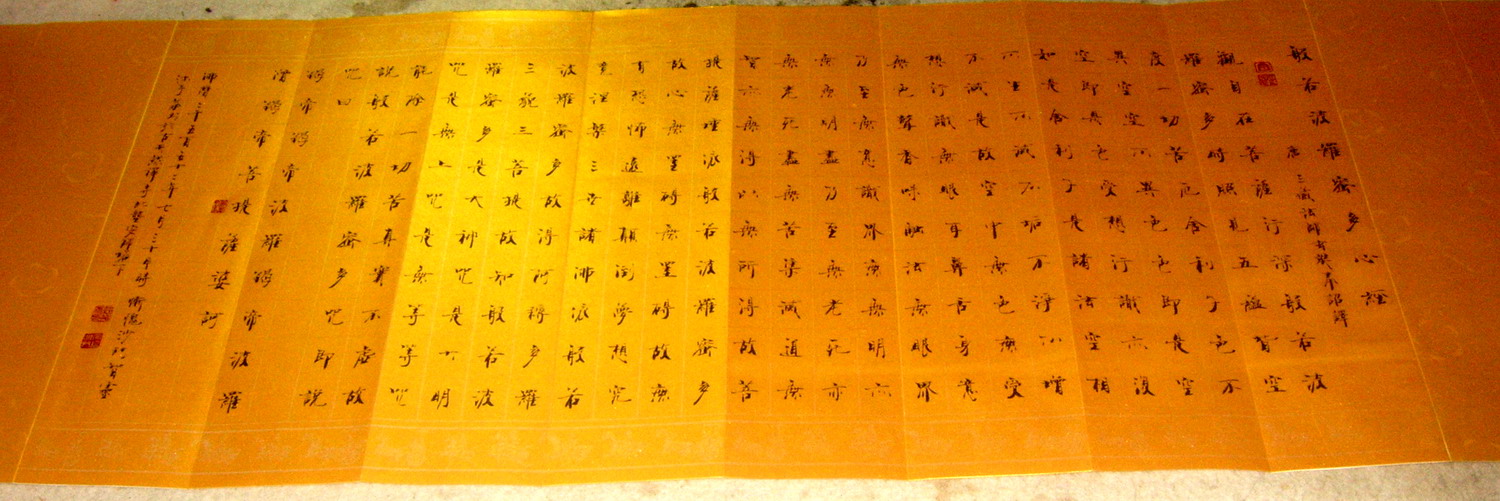 般若波羅密多心經
唐三藏法師玄奘奉詔譯
觀自在菩薩行深般若波
羅密多時照見五蘊皆空
度一切苦厄舍利子色不
異空空不異色色即是空
空即是色受想行識亦復
如是舍利子是諸法空相
不生不滅不垢不淨不增
不減是故空中無色無受
想行識無眼耳鼻舌身意
無色聲香味觸法無眼界
乃至無意識界無無明亦
無無明盡乃至無老死亦
無老死盡無苦集滅道無
智亦無得以無所得故菩
提薩埵依般若波羅密多
故心無罣礙無罣礙故無
有恐怖遠離顛倒夢想究
竟涅槃三世諸佛依般若
波羅密多故得阿耨多羅
三藐三菩提故知般若波
羅密多是大神咒是大明
咒是無上咒是無等等咒
能除一切苦真實不虛故
說般若波羅密多咒即說
咒曰
揭帝揭帝波羅揭帝波羅
僧揭帝菩提薩婆訶
佛曆二千五百五十二年七月三十午時 沙門